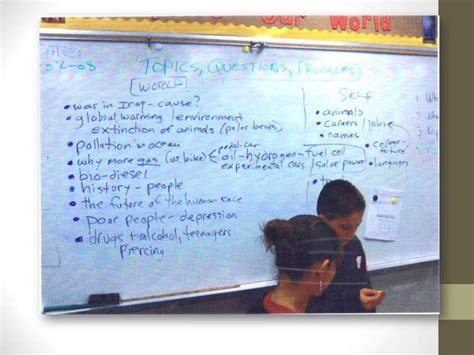 Our World
DATE:
-02-08
TOPICS, QUESTIONS, PROBLEMS
WORLD
• war in Iraq - cause?
• global warming / environment
extinction of animals (polar bears)
• pollution
• why more gas (vs bike)
pedal-car
oil-hydrogen-fuel cell
experimental cars / solar power
• bio-diesel
• history - people
• the future of the human race
• poor people - depression
• drugs + alcohol, teenagers
piercing
SELF
• animals
• careers / jobs
• names
college-
future
• languages
1